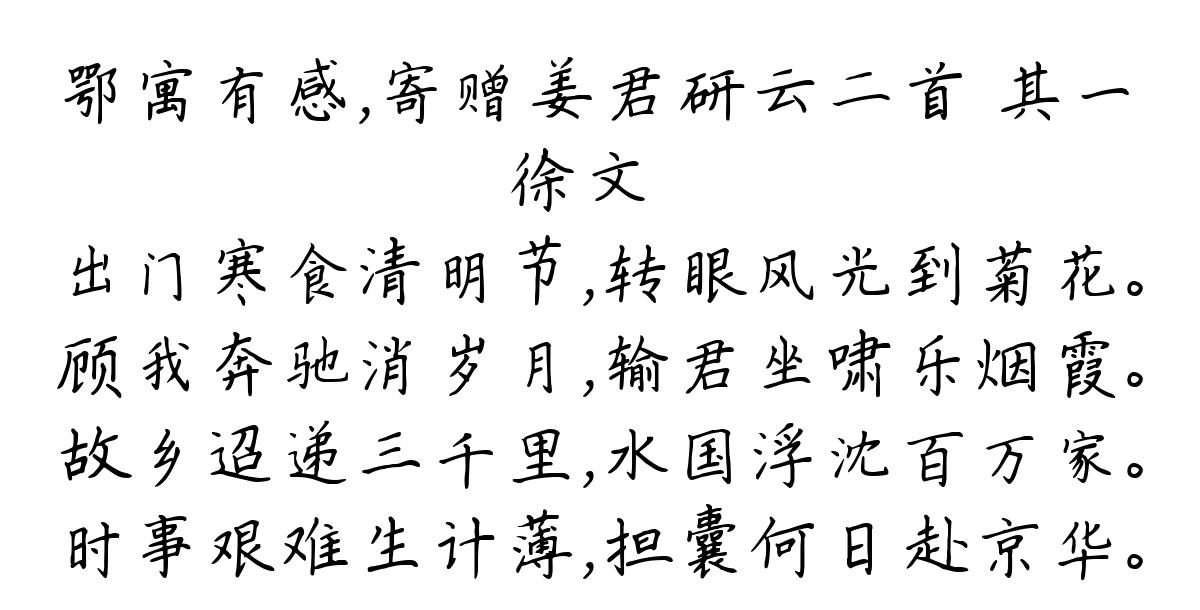 鄂寓有感,寄赠姜君研云二首 其一
徐文
出门寒食清明节,转眼风光到菊花。
顾我奔驰消岁月,输君坐啸乐烟霞。
故乡迢递三千里,水国浮沈百万家。
时事艰难生计薄,担囊何日赴京华。